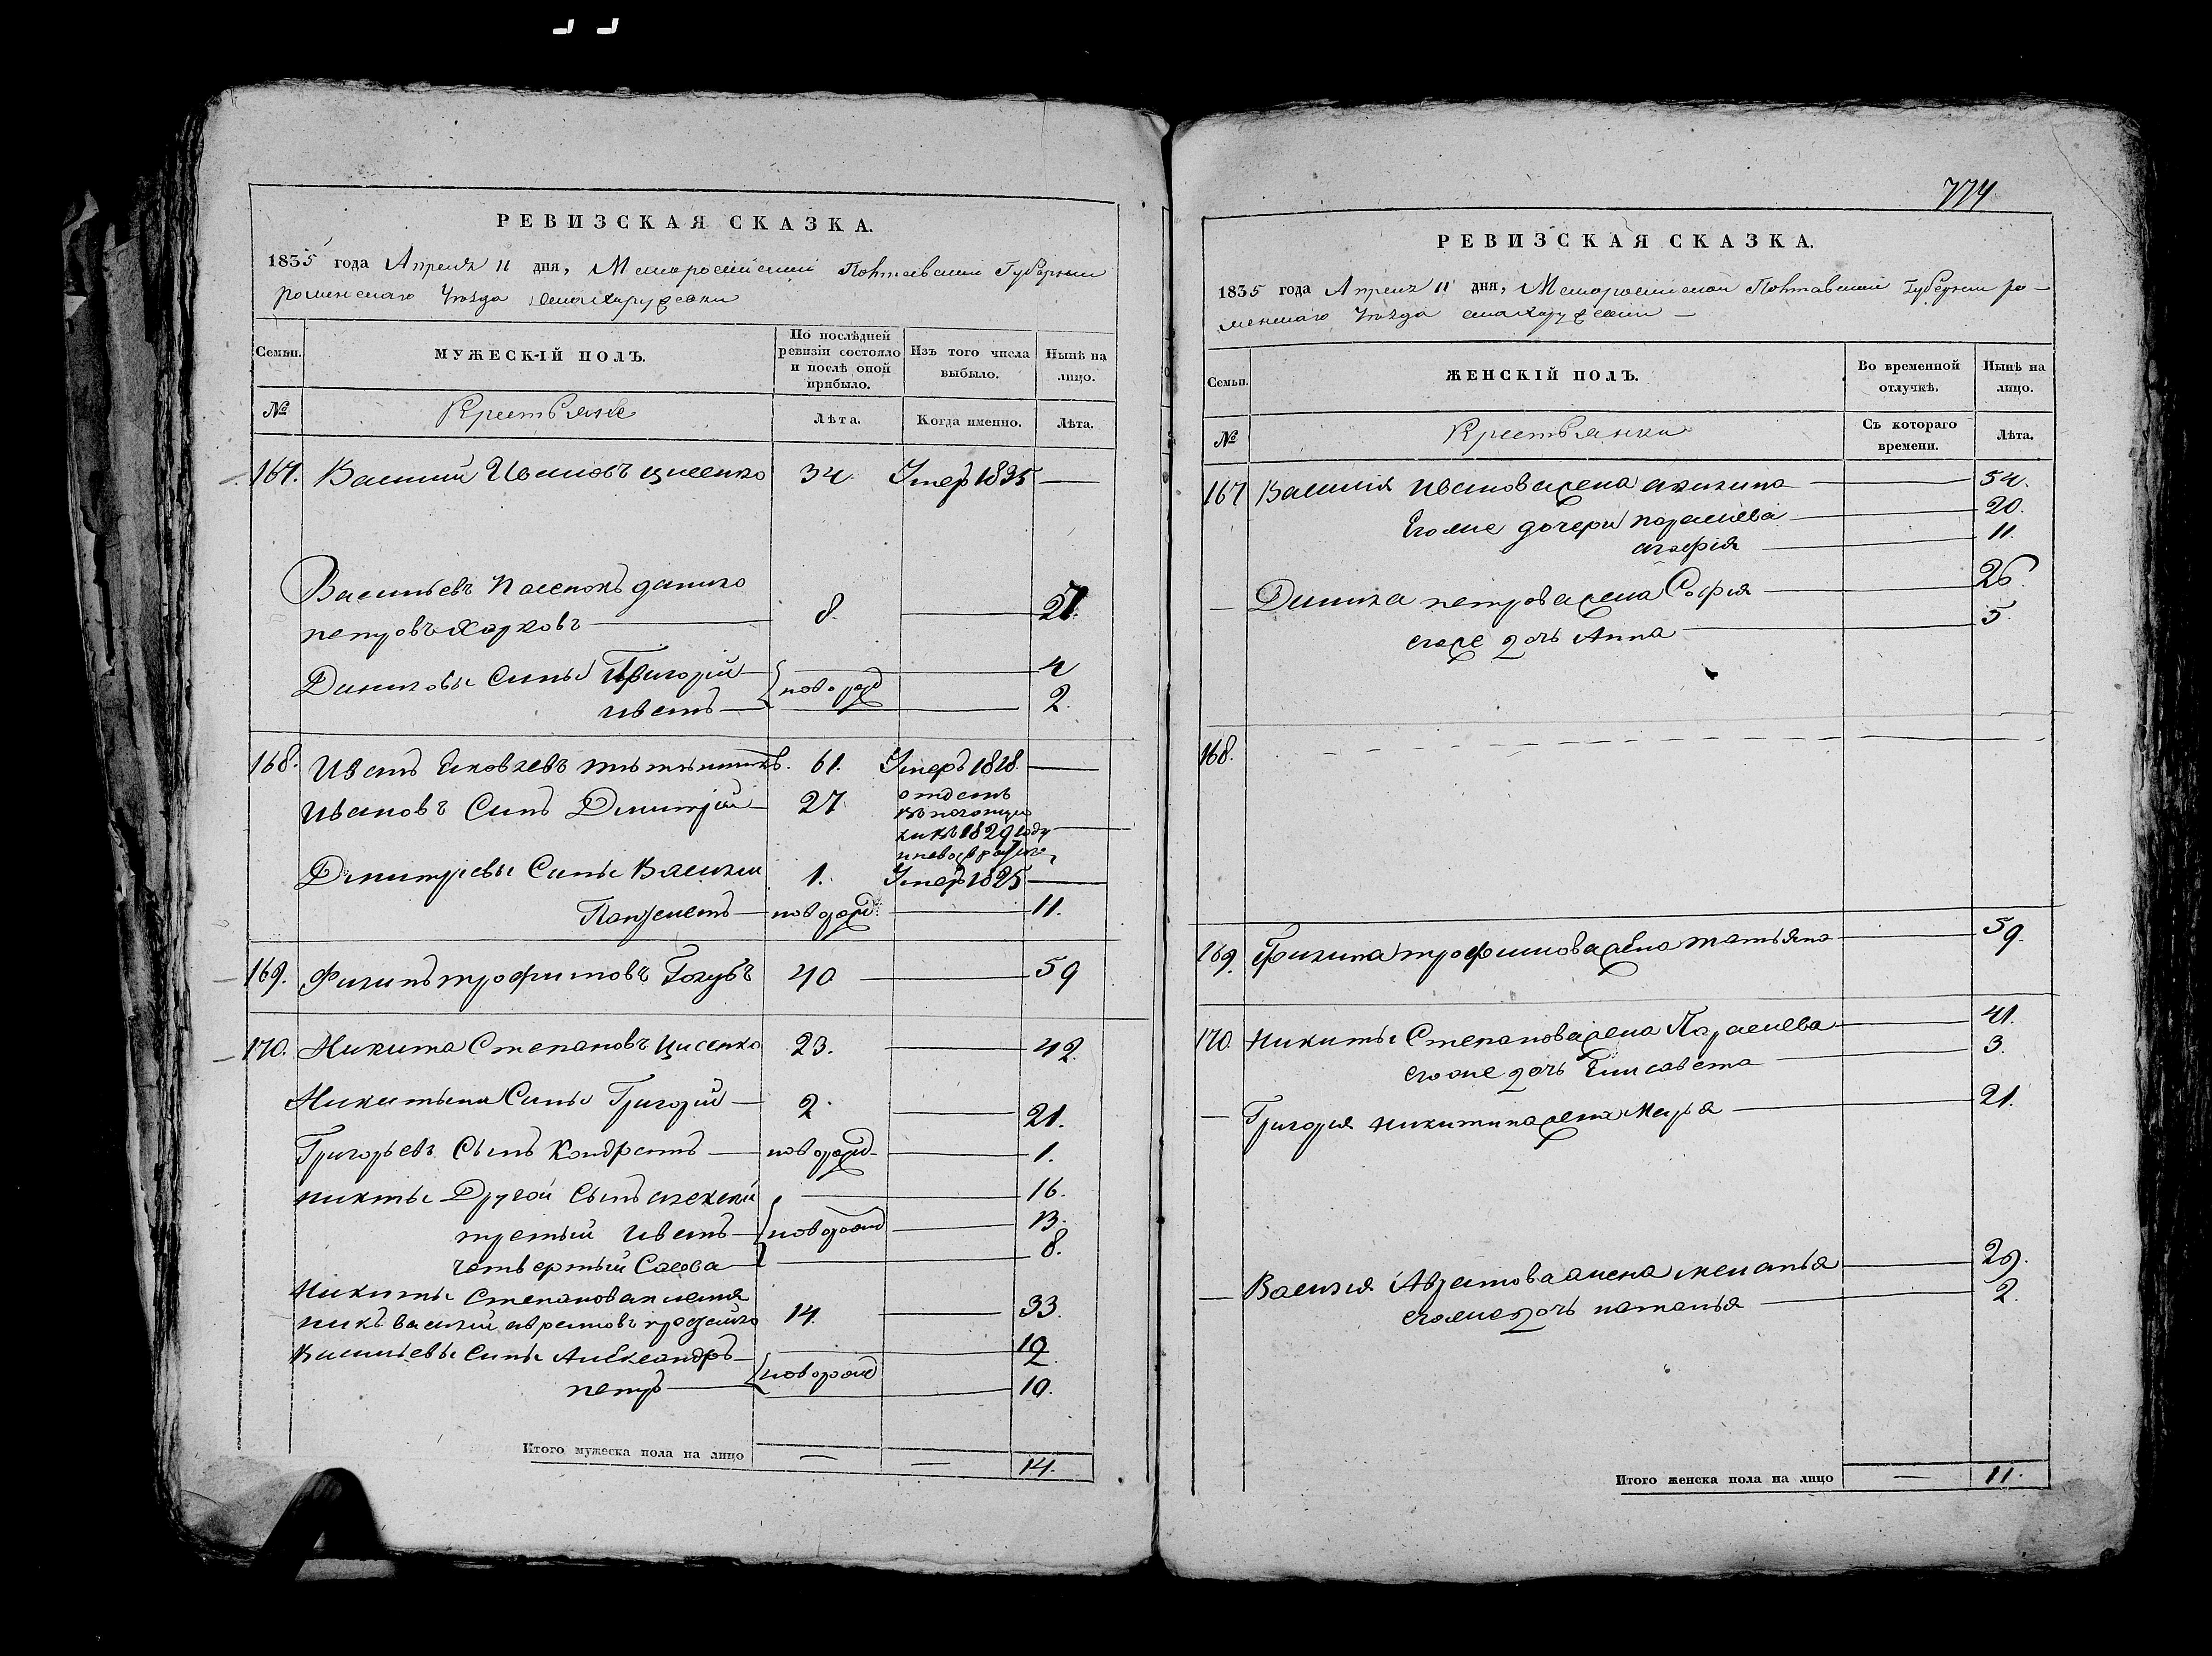 РЕВИЗСКАЯ СКАЗКА.
1835 года Апреля 11 дня, Малороссийской Полтавской Губернии
роменского Уезда
Семьи. МУЖЕСКІЙ ПОЛЪ. По послѣдней ревизіи состояло и послѣ оной прибыло. Изъ того числа выбыло. Нынѣ на лицо.
№ Крестьяне Лѣта. Когда именно. Лѣта.
167. Василий Ивановъ 34. Умеръ 1835 —
Васильевъ Пасенокъ данило
петровъ Харковъ 8. 27.
Даниловы Сыны Григорий 4
иванъ новорожд 2.
168. Иванъ Яковлевъ 61. Умеръ 1828.
Ивановъ Сынъ Дмитрій 27. отданъ
1829 году
Дмитріевы Сыны Василий 1. Умеръ 1825
новорожд 11.
169. Филипъ трофимовъ Голубъ 40 59
170. Никита Степановъ Цисенко 23. 42.
Никитины Сыны Григорий 2. 21.
Григорьевъ Сынъ Кондратъ новорожд 1.
никиты Другой Сынъ алексей 16.
третий иванъ новорожд 13.
четвертый Савва 8.
Никиты Степанова племя
никъ василий аврамовъ 14. 33.
Васильевы Сыны Александръ 12.
петръ новорожд 10.
Итого мужеска пола на лицо — — 14.
774
РЕВИЗСКАЯ СКАЗКА.
1835 года Апреля 11 дня, Малороссийской Полтавской Губернии ро-
менскаго Уезда
Семьи. ЖЕНСКІЙ ПОЛЪ. Во временной отлучкѣ. Нынѣ на лицо.
№ Крестьянки Съ котораго времени. Лѣта.
167 Василия Иванова жена акилина 54.
Егоже дочери параскева 20.
агафія 11.
Данила петрова жена Софія 26.
егоже дочь Анна 5.
168.
169. Филипа трофимова жена татьяна 59.
170. Никиты Степанова жена Параскева 41.
егоже дочь Елисавета 3.
Григория никитина жена Марья 21.
Василия Аврамова жена меланья 29.
егоже дочь наталья 2.
Итого женска пола на лицо — 11.